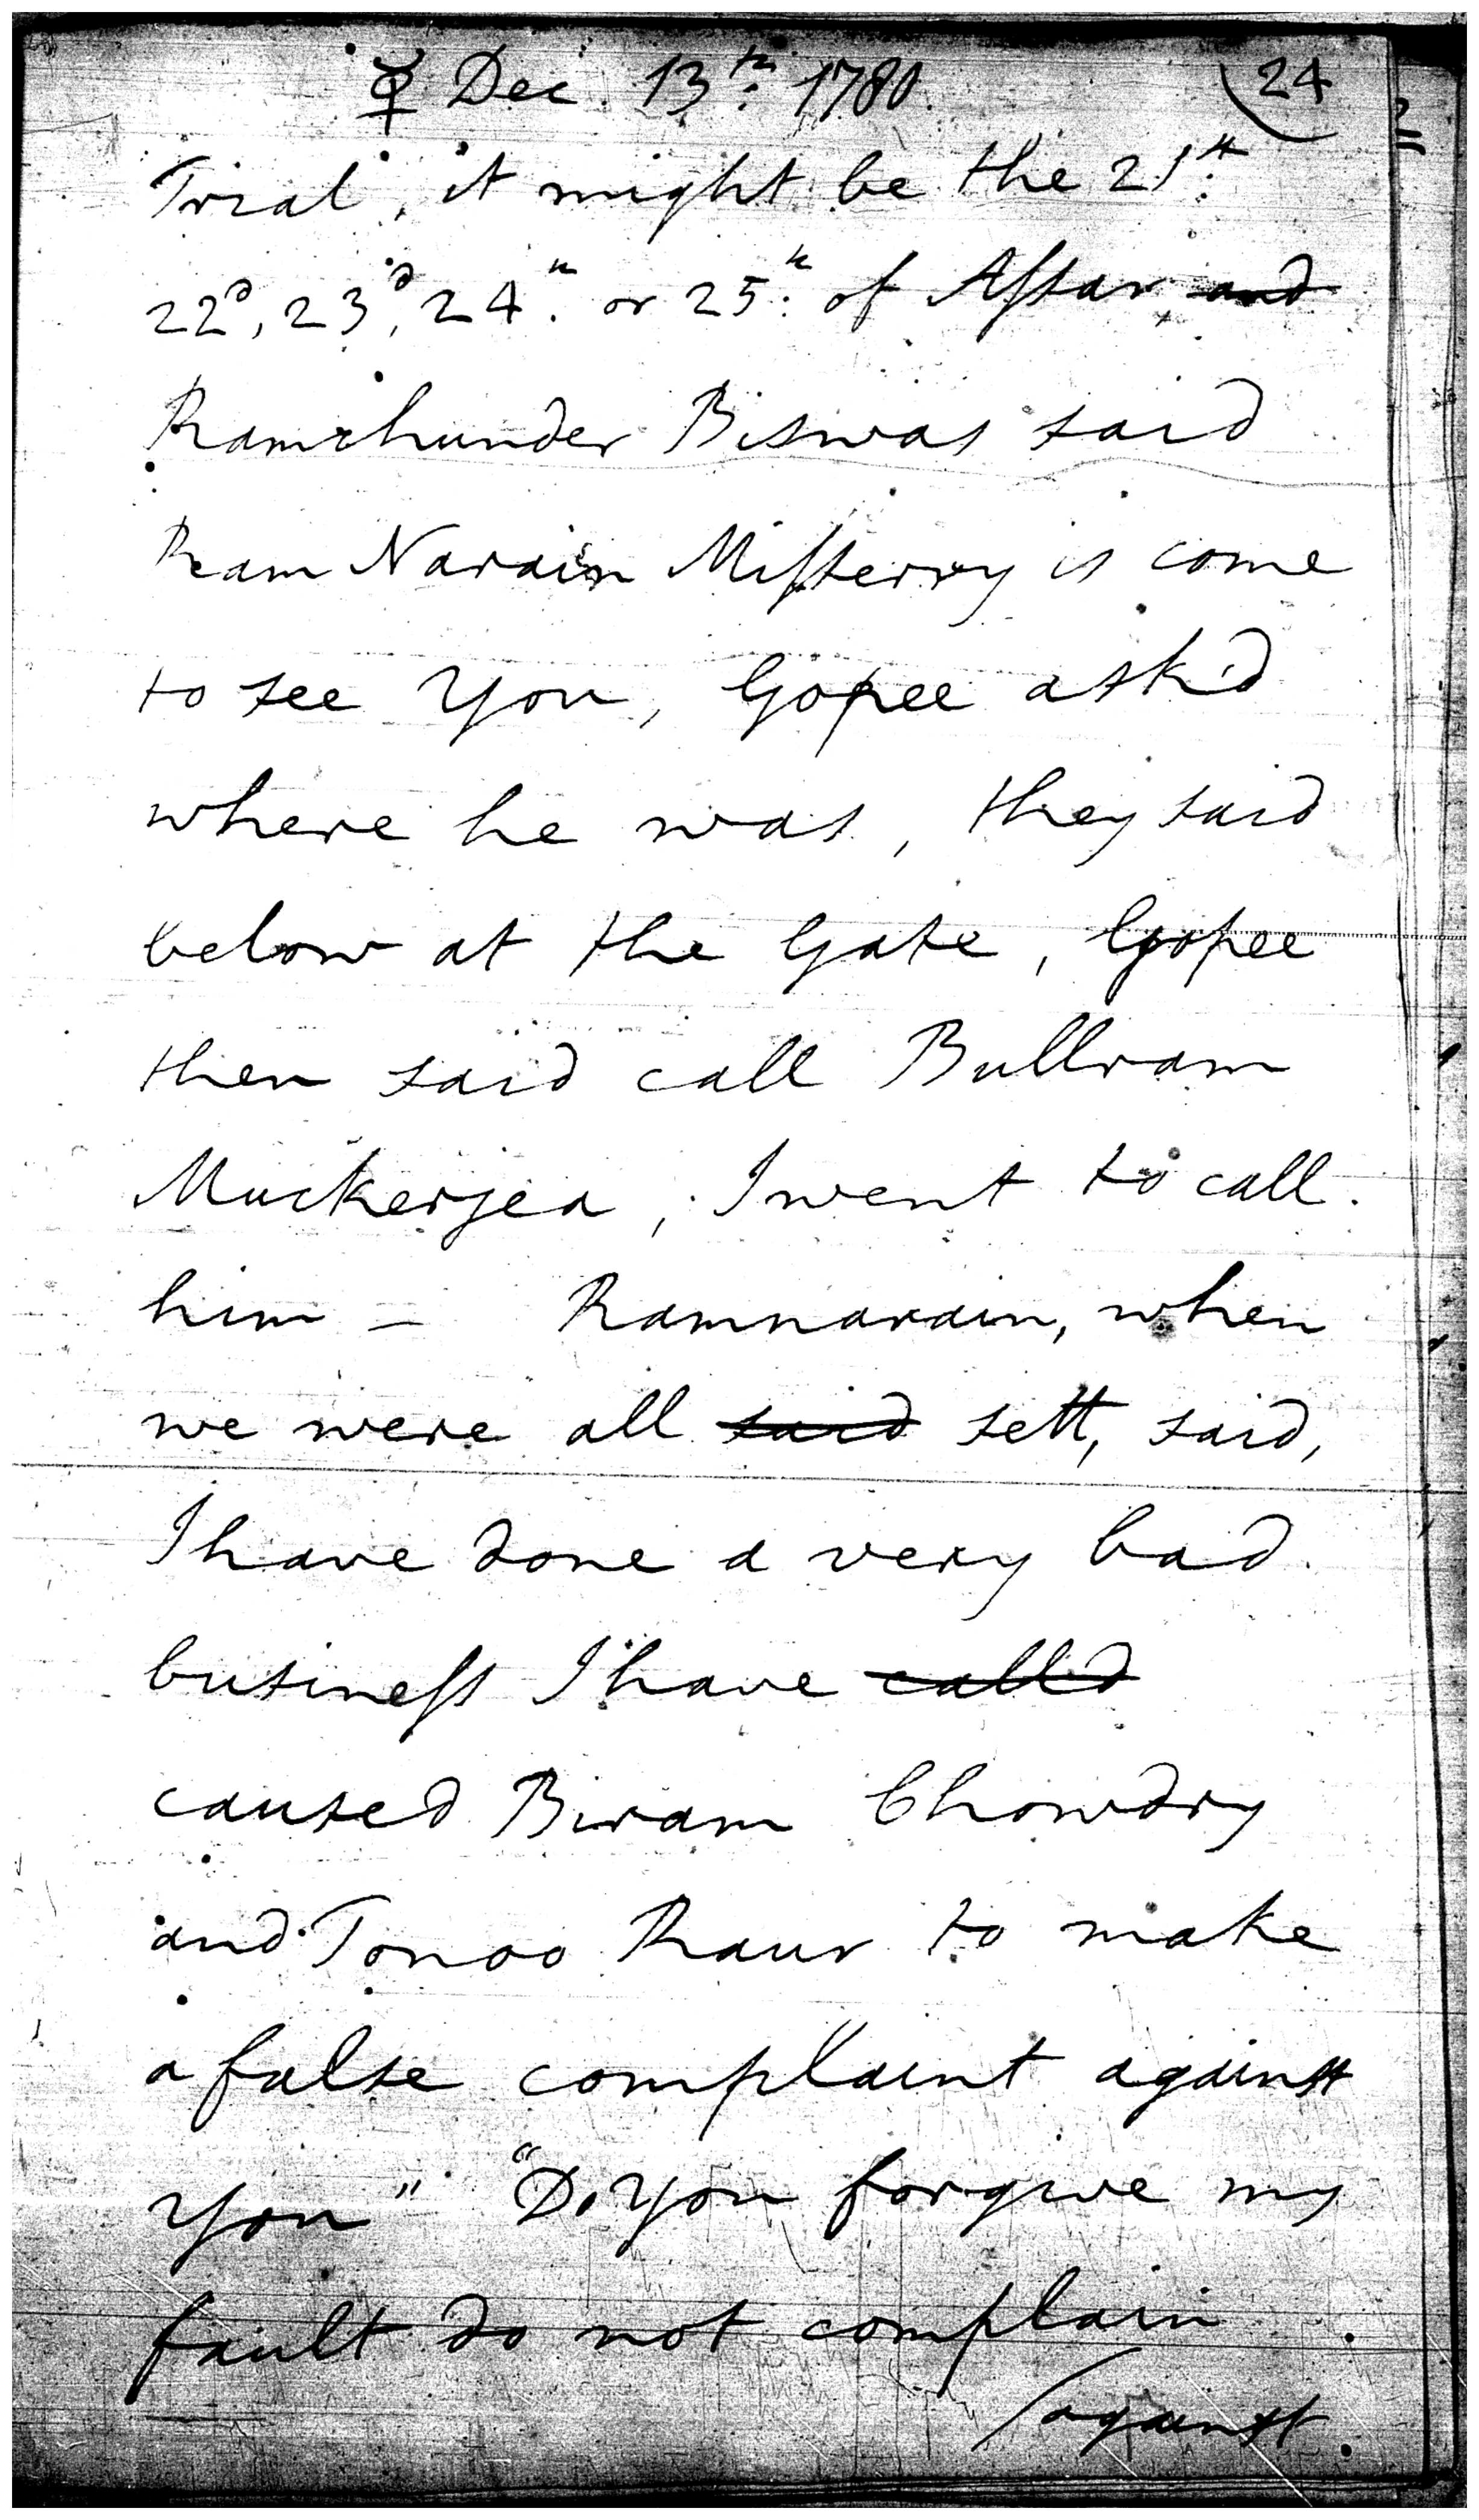 ☿ Dec. 13th. 1780. 24
Trial, it might be the 21st.
22d, 23d, 24th. or 25th. of Assar, and
Ramchunder Biswas said
Ram Narain Misterry is come
to see You, Gopee ask'd
where he was, they said
below at the Gate, Gopee
then said call Bullram
Muckerjea, I went to call
him – Ramnarain, when
we were all said sett, said,
I have done a very bad
business I have call'd
caused Biram Chowdry
and Tonoo Raur to make
a false complaint against
You" "Do You forgive my
fault do not complain
/against